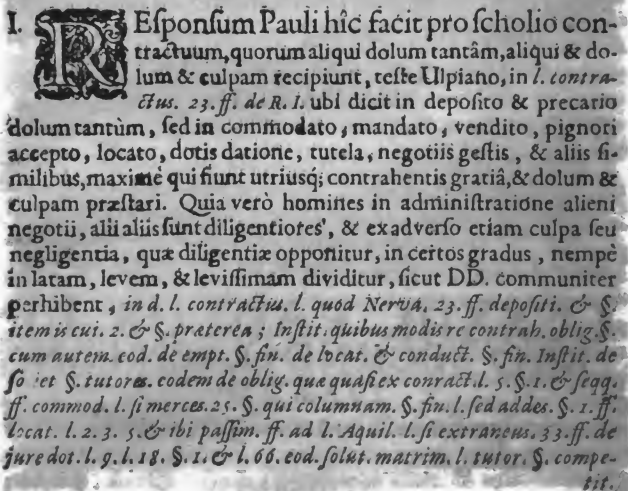 I. REſponſum Pauli hîc facit pro ſcholio con-
tractuum, quorum aliqui dolum tantâm, aliqui & do-
lum & culpam recipiunt, teſte Ulpiano, in l. contra-
ctus. 23. ff. de R. I. ubi dicit in depoſito & precario
dolum tantùm, ſed in commodato, mandato, vendito, pignori
accepto, locato, dotis datione, tutela, negotiis geſtis, & aliis ſi-
milibus, maximè qui fiunt utriusq; contrahentis gratiâ, & dolum &
culpam præſtari. Quia verò homines in adminiſtratione alieni
negotii, alii aliis ſunt diligentiores, & ex adverſo etiam culpa ſeu
negligentia, quæ diligentiæ opponitur, in certos gradus, nempè
in latam, levem, & leviſſimam dividitur, ſicut DD. communiter
perhibent, in d. l. contractus. l. quod Nerva. 23. ff. depoſiti. & §.
item is cui. 2. & §. præterea; Inſtit. quibus modis re contrah. oblig. §.
cum autem. eod. de empt. §. fin. de locat. & conduct. §. fin. Inſtit. de
ſo iet §. tutores. eodem de oblig. quæ quaſi ex conract. l. 5. §. 1. & ſeqq.
ff. commod. l. ſi merces. 25. §. qui columnam. §. fin. l. ſed addes. §. 1. ff.
locat. l. 2. 3. 5. & ibi paſſim. ff. ad l. Aquil. l. ſi extraneus. 33. ff. de
jure dot. l. 9. l. 18. §. 1. & l. 66. eod. ſolut. matrim. l. tutor. §. compe-
tit.